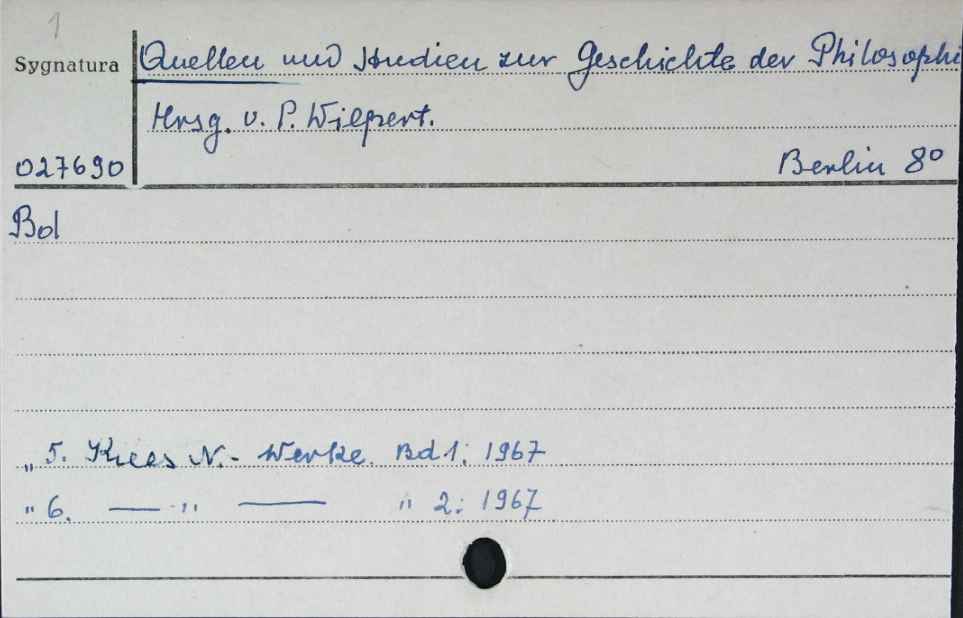 1
Sygnatura
Quellen und Studien zur Geschichte der Philosophi
Hrsg. v. P. Wilpert.
027690
Berlin 8°
Bd
„ 5. Kues N.- Werke. Bd 1: 1967
„ 6. — „ — „ 2: 1967